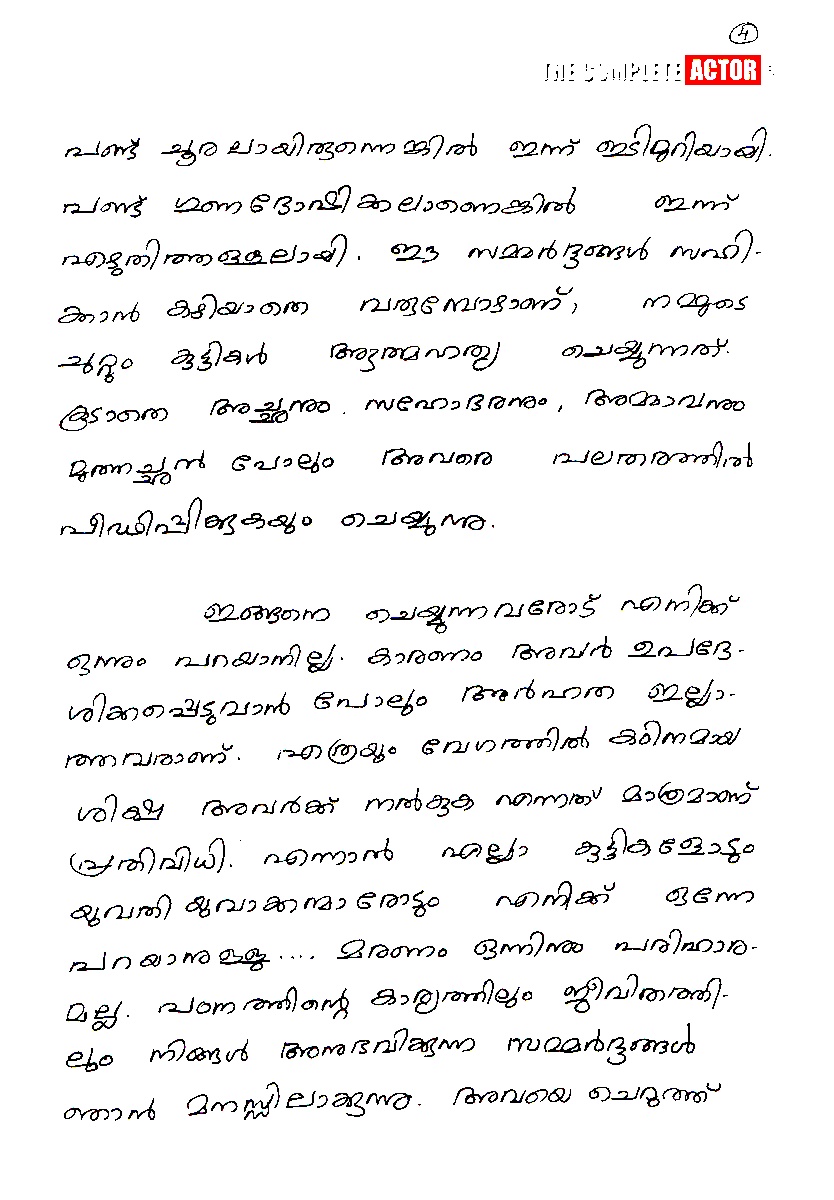 4
THE COMPLETE ACTOR
പണ്ട് ചൂരലായിരുന്നെങ്കിൽ ഇന്ന് ഇടിമുറിയായി.
പണ്ട് ഗുണദോഷിക്കലാണെങ്കിൽ ഇന്ന്
എഴുതിത്തള്ളലായി. ഈ സമ്മർദ്ദങ്ങൾ സഹി-
ക്കാൻ കഴിയാതെ വരുമ്പോഴാണ്, നമ്മുടെ
ചുറ്റും കുട്ടികൾ ആത്മഹത്യ ചെയ്യുന്നത്.
കൂടാതെ അച്ഛനും, സഹോദരനും, അമ്മാവനും
മുത്തച്ഛൻ പോലും അവരെ പലതരത്തിൽ
പീഢിപ്പിക്കുകയും ചെയ്യുന്നു.
ഇങ്ങനെ ചെയ്യുന്നവരോട് എനിക്ക്
ഒന്നും പറയാനില്ല. കാരണം അവർ ഉപദേ-
ശിക്കപ്പെടുവാൻ പോലും അർഹത ഇല്ലാ-
ത്തവരാണ്. എത്രയും വേഗത്തിൽ കഠിനമായ
ശിക്ഷ അവർക്ക് നൽകുക എന്നത് മാത്രമാണ്
പ്രതിവിധി. എന്നാൽ എല്ലാ കുട്ടികളോടും
യുവതി യുവാക്കന്മാരോടും എനിക്ക് ഒന്നേ
പറയാനുള്ളൂ.... മരണം ഒന്നിനും പരിഹാര-
മല്ല. പഠനത്തിന്റെ കാര്യത്തിലും ജീവിതത്തി-
ലും നിങ്ങൾ അനുഭവിക്കുന്ന സമ്മർദ്ദങ്ങൾ
ഞാൻ മനസ്സിലാക്കുന്നു. അവയെ ചെറുത്ത്